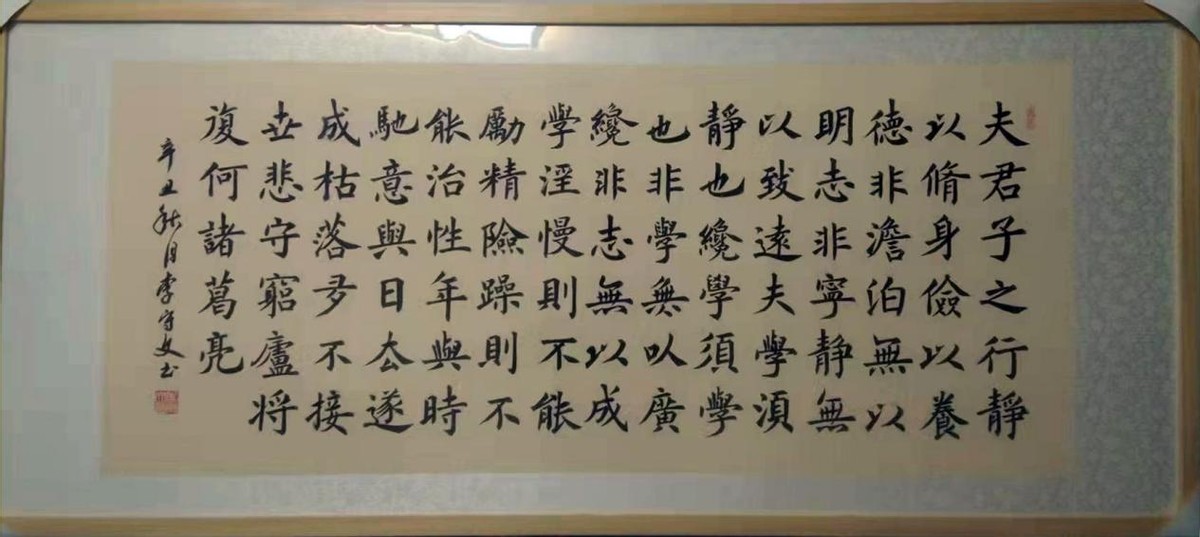 夫君子之行靜
以脩身儉以養
德非澹泊無以
明志非寧靜無
以致遠夫學須
靜也纔學須學
也非學無以廣
纔非志無以成
學淫慢則不能
勵精險躁則不
能治性年與時
馳意與日去遂
成枯落多不接
世悲守窮廬将
復何諸葛亮
辛丑秋月李守书